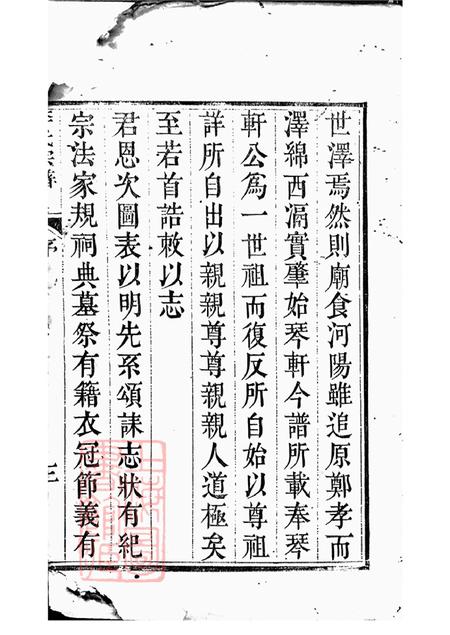 世澤焉然則廟食河陽雖追原鄭孝而
澤綿西滆實肇始琴軒今譜所載奉琴
軒公爲一世祖而復反所自始以尊祖
詳所自出以親親尊尊親親人道極矣
至若首誥敕以志
君恩次圖表以明先系頌誄志狀有紀
宗法家規祠典墓祭有籍衣冠節義有
序
三